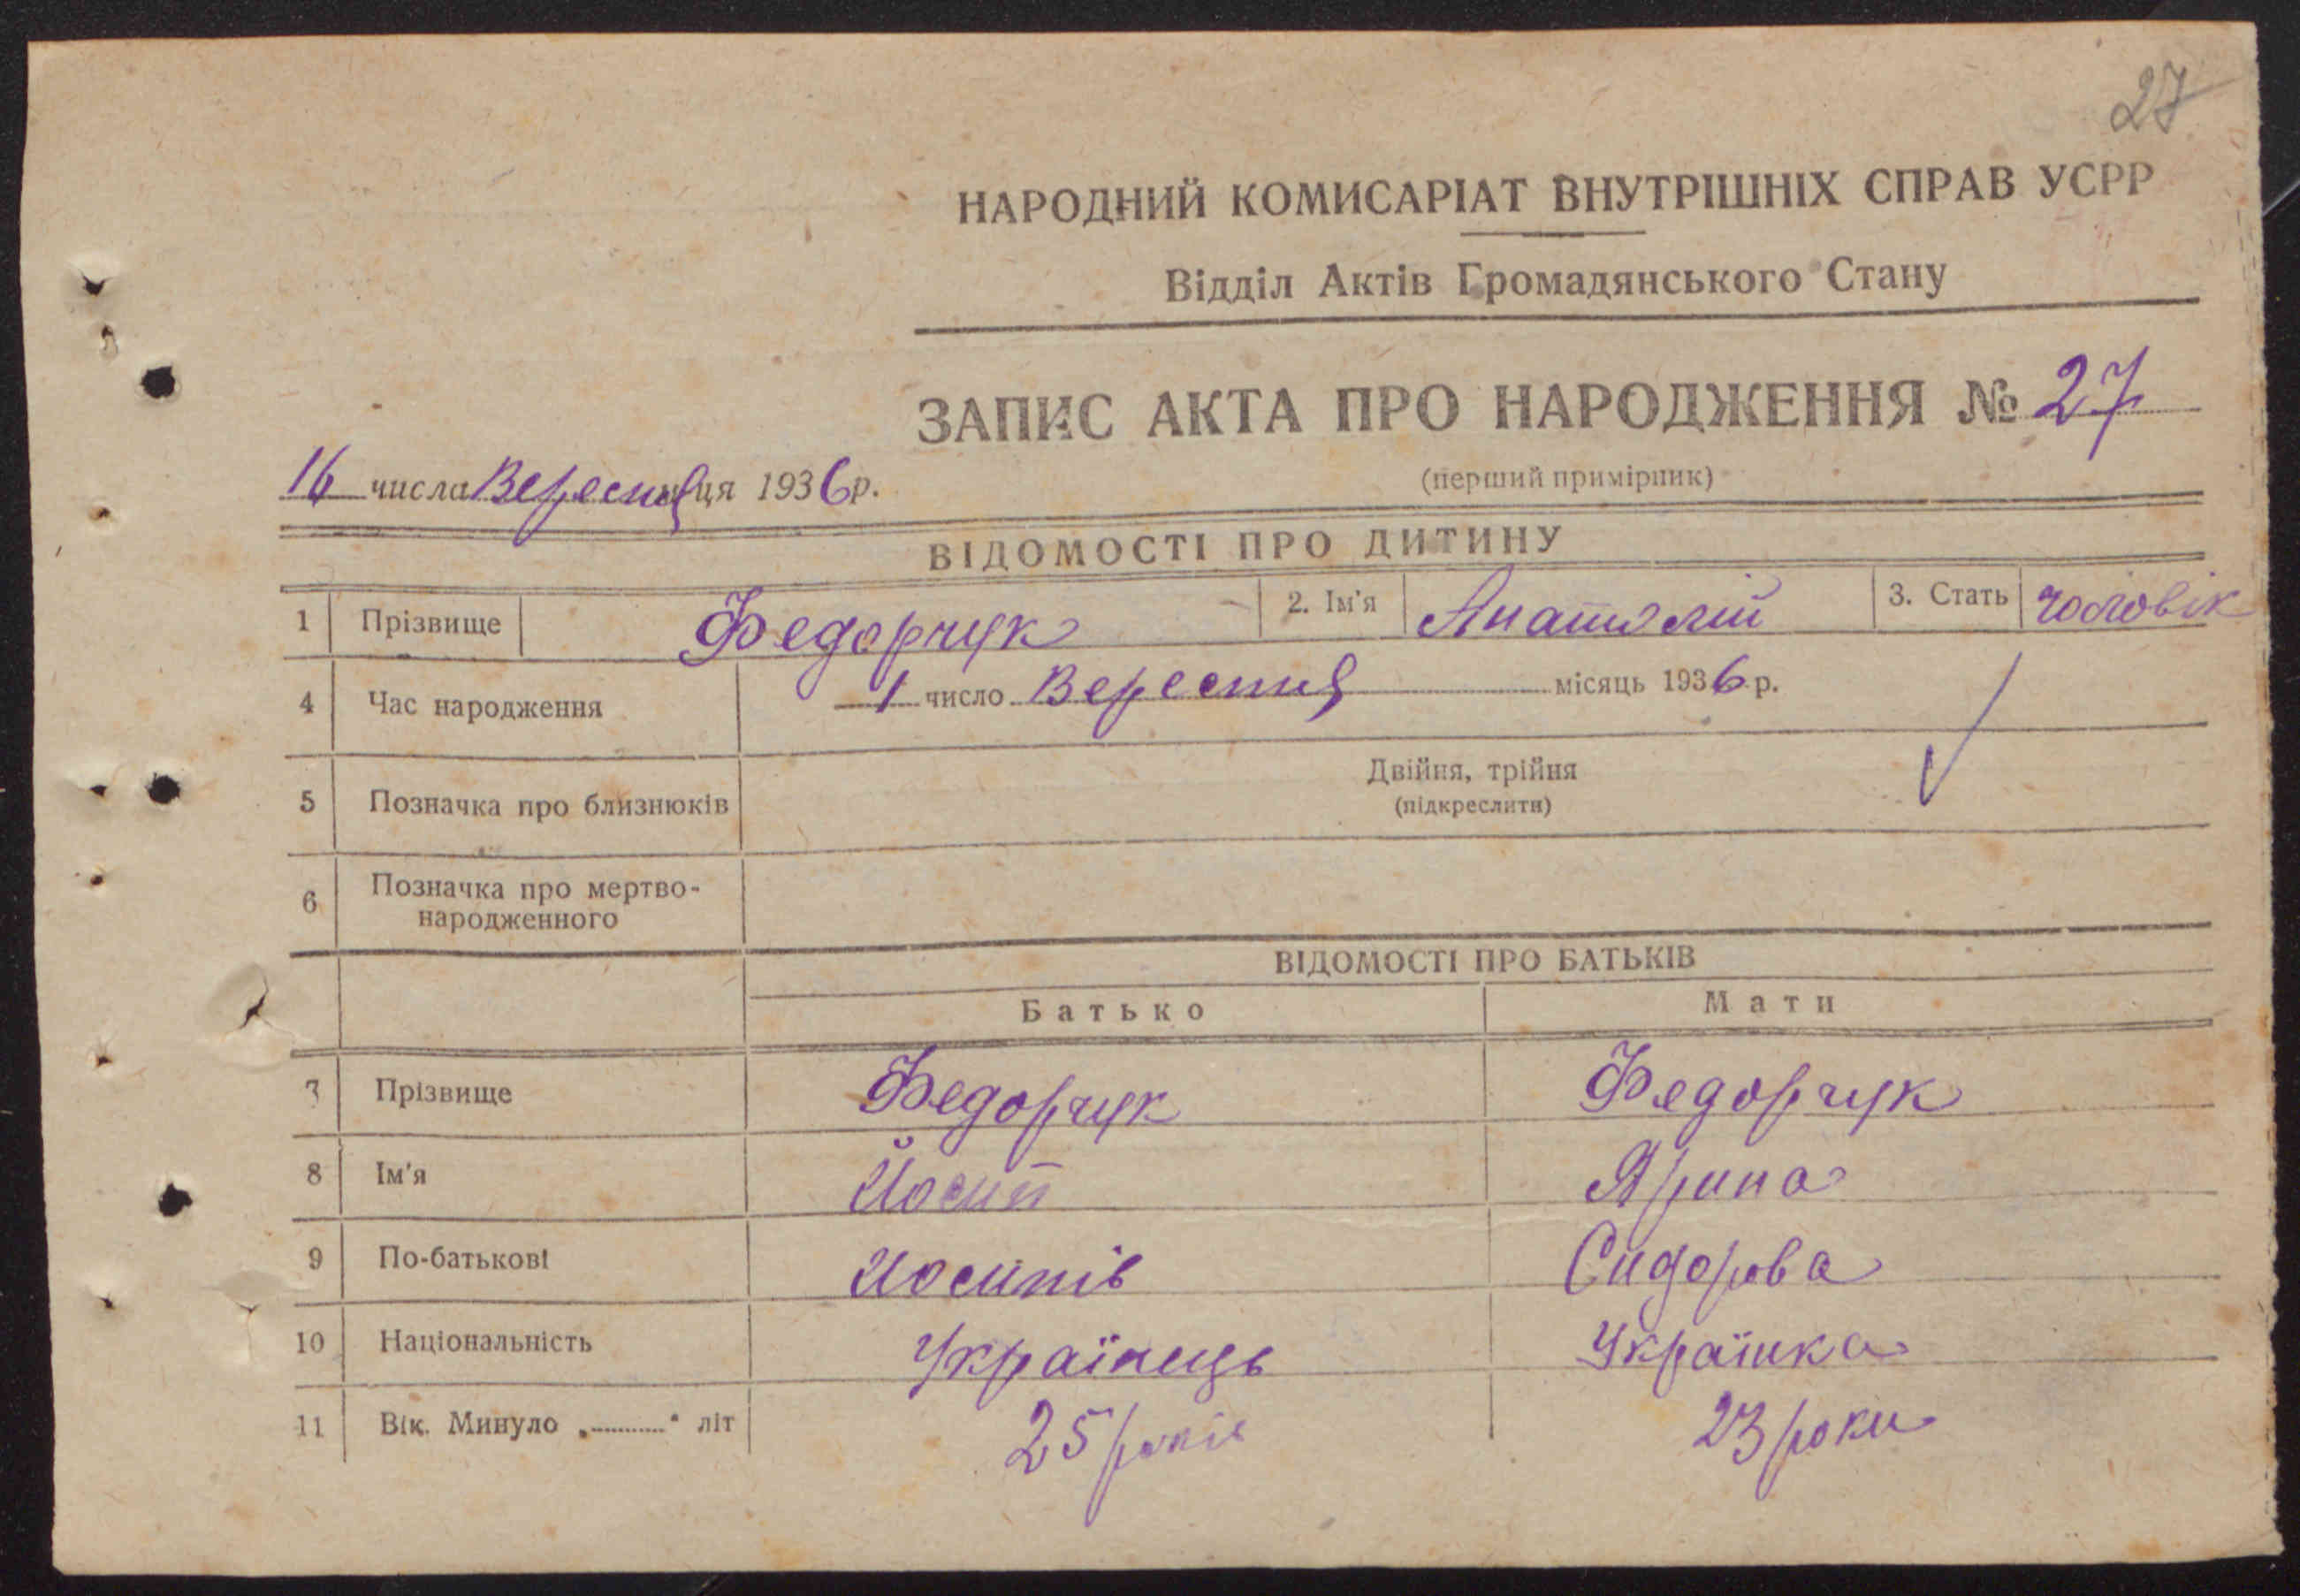 27
НАРОДНИЙ КОМИСАРІАТ ВНУТРІШНІХ СПРАВ УСРР
Відділ Актів Громадянського Стану
ЗАПИС АКТА ПРО НАРОДЖЕННЯ № 27
(перший примірник)
16 числа Вересня ця 1936 р.
ВІДОМОСТІ ПРО ДИТИНУ
1 Прізвище Федорчук 2. Ім'я Анатолій 3. Стать чоловік
4 Час народження 1 число Вересня місяць 1936 р.
5 Позначка про близнюків Двійня, трійня
(підкреслити)
6 Позначка про мертво-
народженного
ВІДОМОСТІ ПРО БАТЬКІВ
Батько Мати
7 Прізвище Федорчук Федорчук
8 Ім'я Йосип Ярина
9 По-батькові Иосипів Сидорова
10 Національність Українець Українка
11 Вік. Минуло „..........“ літ 25 років 23 роки